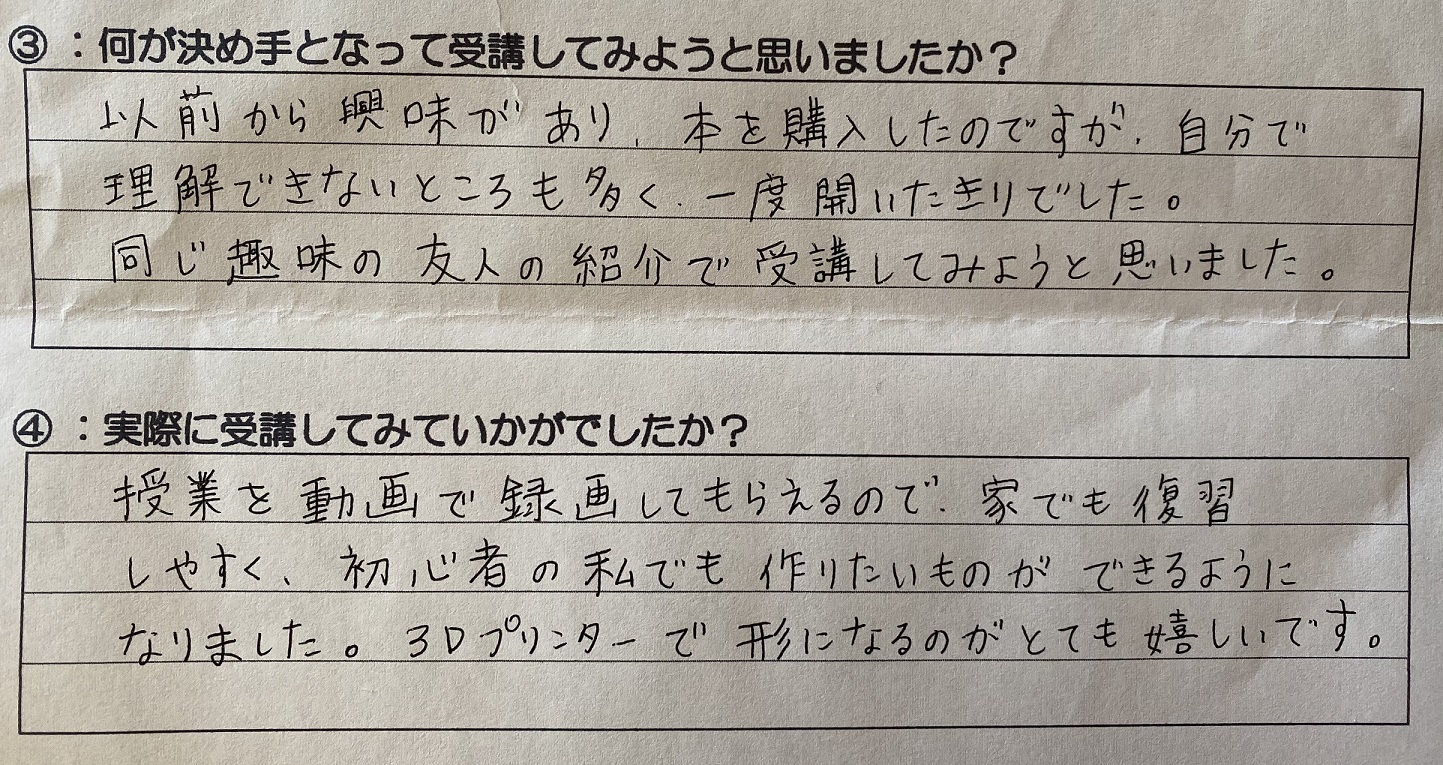 ③：何が決め手となって受講してみようと思いましたか？
以前から興味があり、本を購入したのですが、自分で
理解できないところも多く、一度開いたきりでした。
同じ趣味の友人の紹介で受講してみようと思いました。
④：実際に受講してみていかがでしたか？
授業を動画で録画してもらえるので、家でも復習
しやすく、初心者の私でも作りたいものができるように
なりました。3Dプリンターで形になるのがとても嬉しいです。